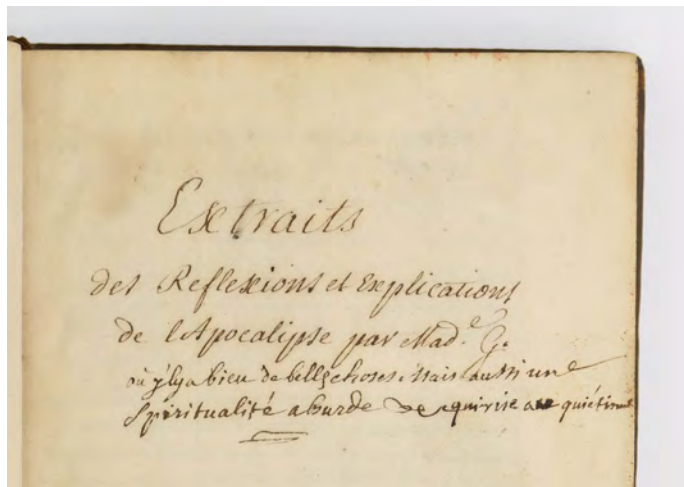 Extraits
des Reflexions et Explications
de l'Apocalipse par Mad.e G.
où il y a bien de belles choses. Mais aussi une
Spiritualité absurde qui vise au quiétisme